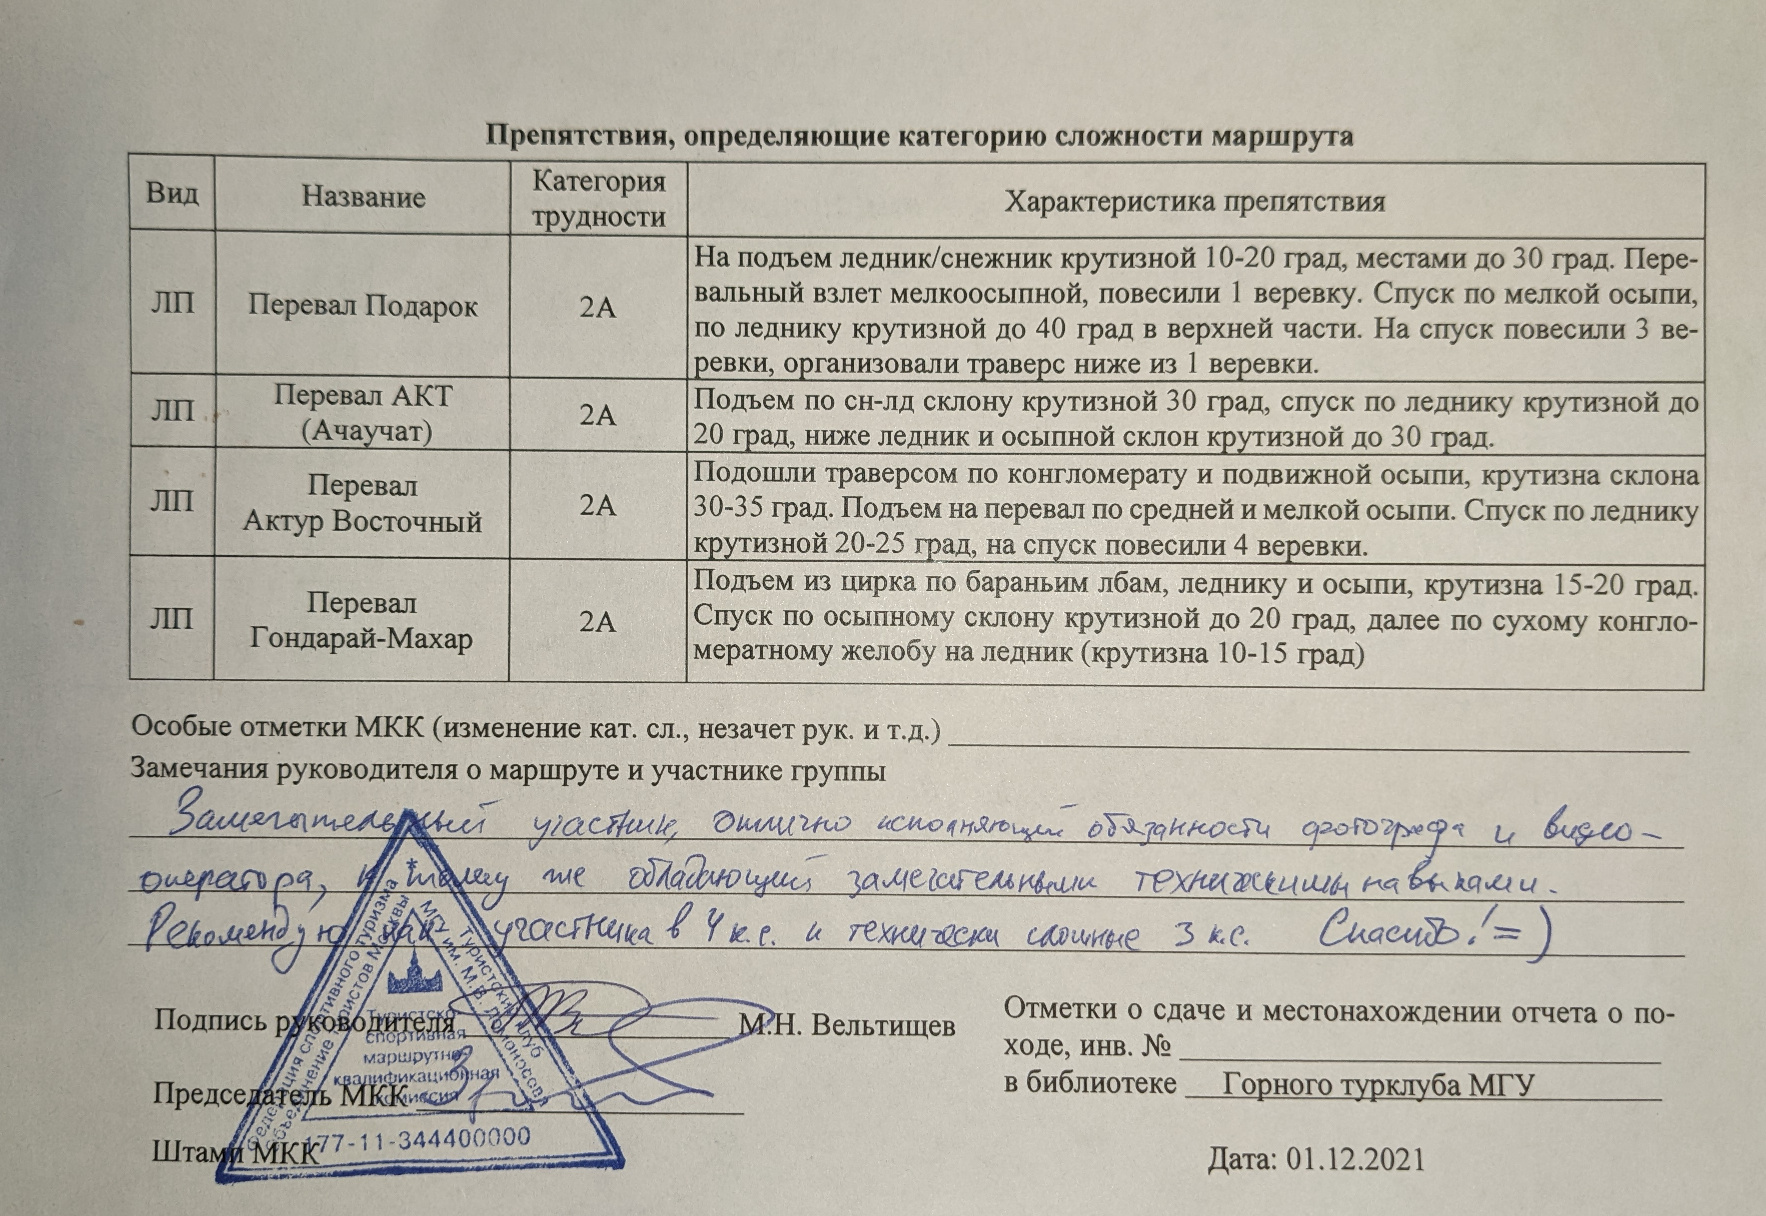 Препятствия, определяющие категорию сложности маршрута
Вид
Название
Категория
трудности
Характеристика препятствия
ЛП
Перевал Подарок
2А
На подъем ледник/снежник крутизной 10-20 град, местами до 30 град. Пере-
вальный взлет мелкоосыпной, повесили 1 веревку. Спуск по мелкой осыпи,
по леднику крутизной до 40 град в верхней части. На спуск повесили 3 ве-
ревки, организовали траверс ниже из 1 веревки.
ЛП
Перевал АКТ
(Ачаучат)
2А
Подъем по сн-лд склону крутизной 30 град, спуск по леднику крутизной до
20 град, ниже ледник и осыпной склон крутизной до 30 град.
ЛП
Перевал
Актур Восточный
2А
Подошли траверсом по конгломерату и подвижной осыпи, крутизна склона
30-35 град. Подъем на перевал по средней и мелкой осыпи. Спуск по леднику
крутизной 20-25 град, на спуск повесили 4 веревки.
ЛП
Перевал
Гондарай-Махар
2А
Подъем из цирка по бараньим лбам, леднику и осыпи, крутизна 15-20 град.
Спуск по осыпному склону крутизной до 20 град, далее по сухому конгло-
мератному желобу на ледник (крутизна 10-15 град)
Особые отметки МКК (изменение кат. сл., незачет рук. и т.д.)
Замечания руководителя о маршруте и участнике группы
Замечательный участник, отлично исполняющий обязанности фотографа и видео-
оператора, к тому же обладающий замечательными техническими навыками.
Рекомендую как участника в 4 к.с. и технически сложные 3 к.с. Спасибо! =)
Подпись руководителя М.Н. Вельтищев
Председатель МКК
Штамп МКК
Отметки о сдаче и местонахождении отчета о по-
ходе, инв. №
в библиотеке Горного турклуба МГУ
Дата: 01.12.2021
Федерация спортивного туризма
Объединение туристов Москвы
Туристский клуб
МГУ им. М.В. Ломоносова
Туристско
спортивная
маршрутно
квалификационная
комиссия
177-11-344400000